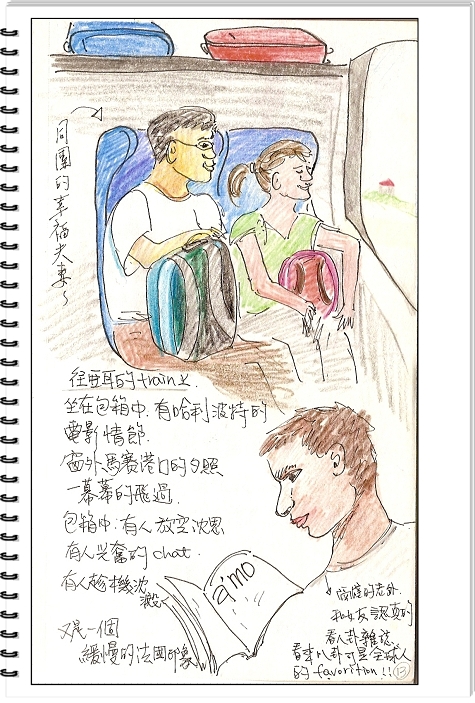 同團的幸福夫妻～
往亞耳的train上
坐在包箱中.有哈利波特的
電影情節.
窗外馬賽港口的夕照
一幕幕的飛過.
包箱中:有人放空沈思
有人興奮的chat.
有人趁機沈
澱～
又是一個
緩慢的法國印象
a'mo
的老外.
和女友認真的
看八卦雜誌.
看來八卦可是全球人
的favorition!!
13